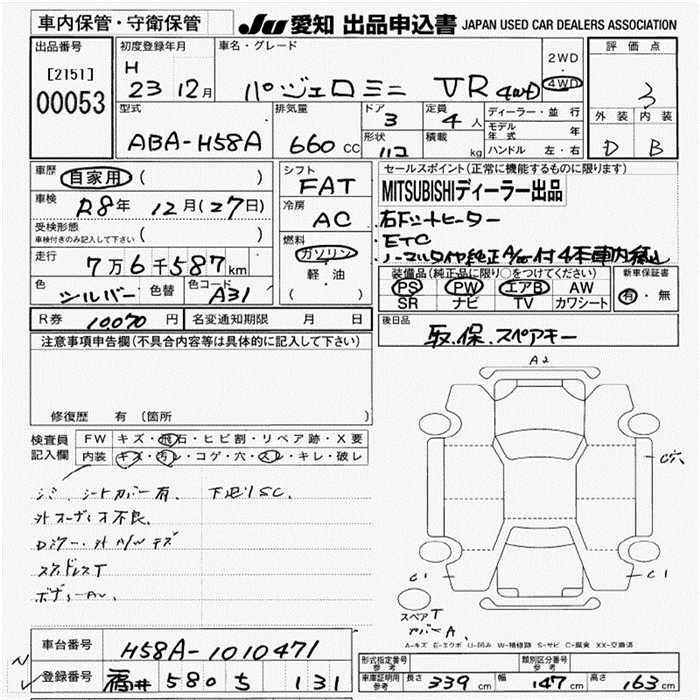 車内保管・守衛保管
JU 愛知 出品申込書 JAPAN USED CAR DEALERS ASSOCIATION
出品番号 初度登録年月 車名・グレード 2WD ・ 4WD 評価点
[2151] 00053 H 23 12月 パジェロミニ VR 4WD 3
型式 排気量 ドア 定員 ディーラー・並行 外装 内装
ABA-H58A 660 CC 3 4人 モデル年式 年 D B
形状 積載 kg ハンドル 左・右
車歴 自家用 ( ) シフト FAT セールスポイント(正常に機能するものに限ります)
車検 R8年 12月(27日) 冷房 AC MITSUBISHIディーラー出品
受検形態 車検付きのみ記入して下さい ( ) 右シートヒーター
燃料 ガソリン 軽・油 ( ) ETC
走行 7万6千587km ノーマルタイヤ純正A/W付4本車内
色 シルバー 色替 色コード A31 装備品(純正品に限り○をつけてください) 新車保証書
PS PW エアB AW 有・無
SR ナビ TV カワシート
R券 10,070円 名変通知期限 月 日 後日品
取.保.スペアキー
注意事項申告欄(不具合内容等は具体的に記入して下さい)
修復歴 有(箇所 )
A2
検査員記入欄 FW キズ・飛石・ヒビ割・リペア跡・X要
内装 キズ・汚レ・コゲ・穴・スレ・キレ・破レ
シミ、シートカバー有、下廻りSC.
外オーディオ不良.
スタッドレスT
C穴
C1 C1
スペアT
カバーA.
A-キズ E-エクボ U-凹み W-補修跡 S-サビ C-腐食 XX-交換済
車台番号 H58A-1010471
登録番号 福井 580 ち 131
形式指定番号 参考 類別区分番号 参考
車庫証明用 参考 長さ 339cm 幅 147cm 高さ 163cm